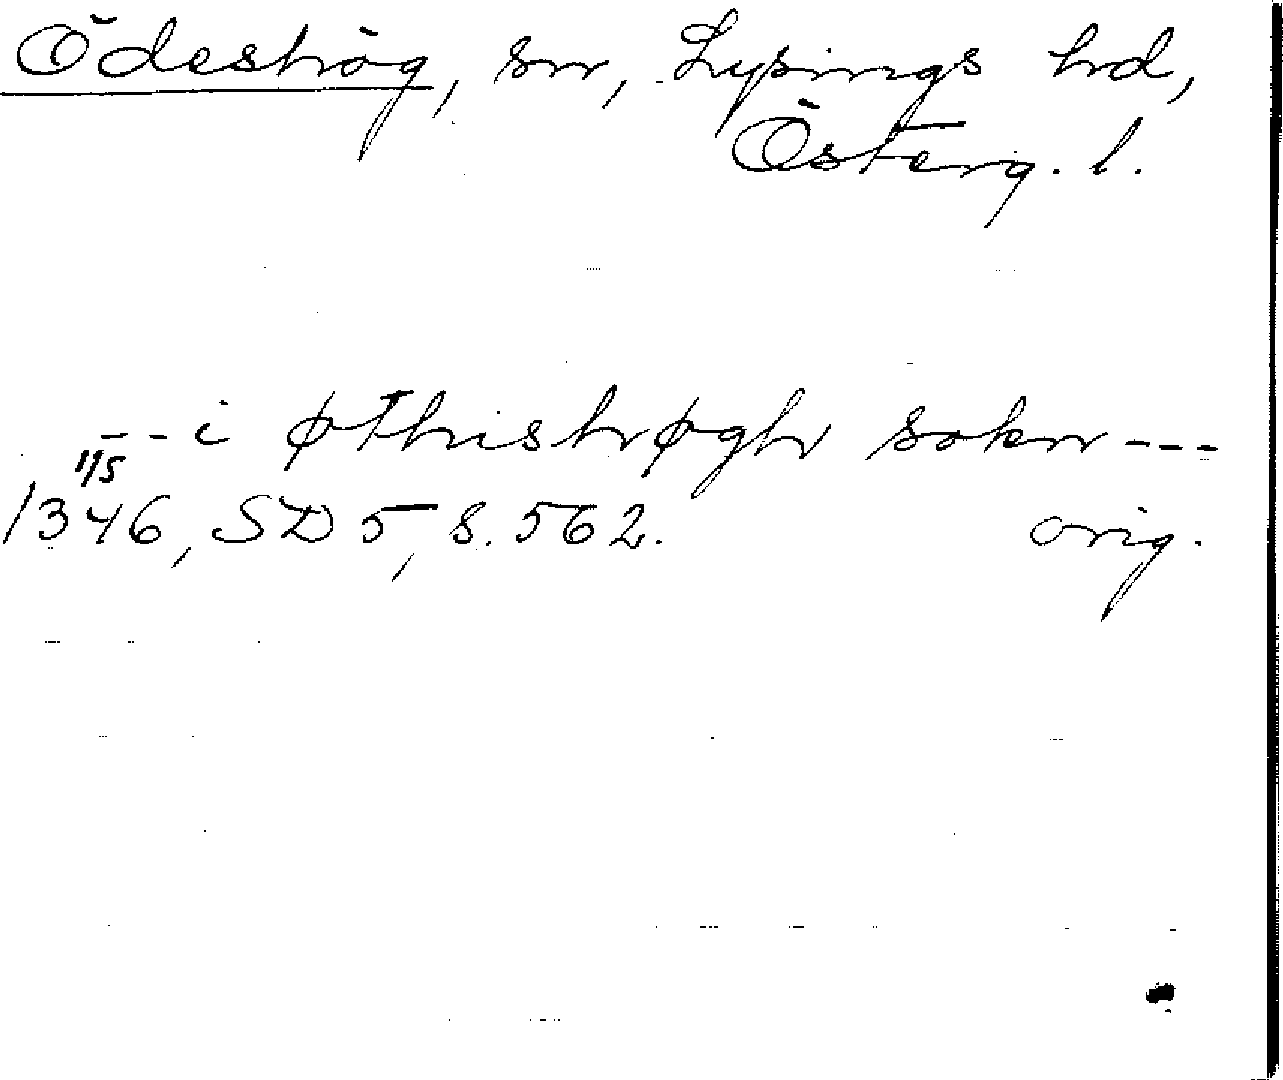 Ödeshög, sn, Lysings hd,
Österg. l.
--i øthishøgh sokn---
1/5
1346, SD 5, s. 562. orig.